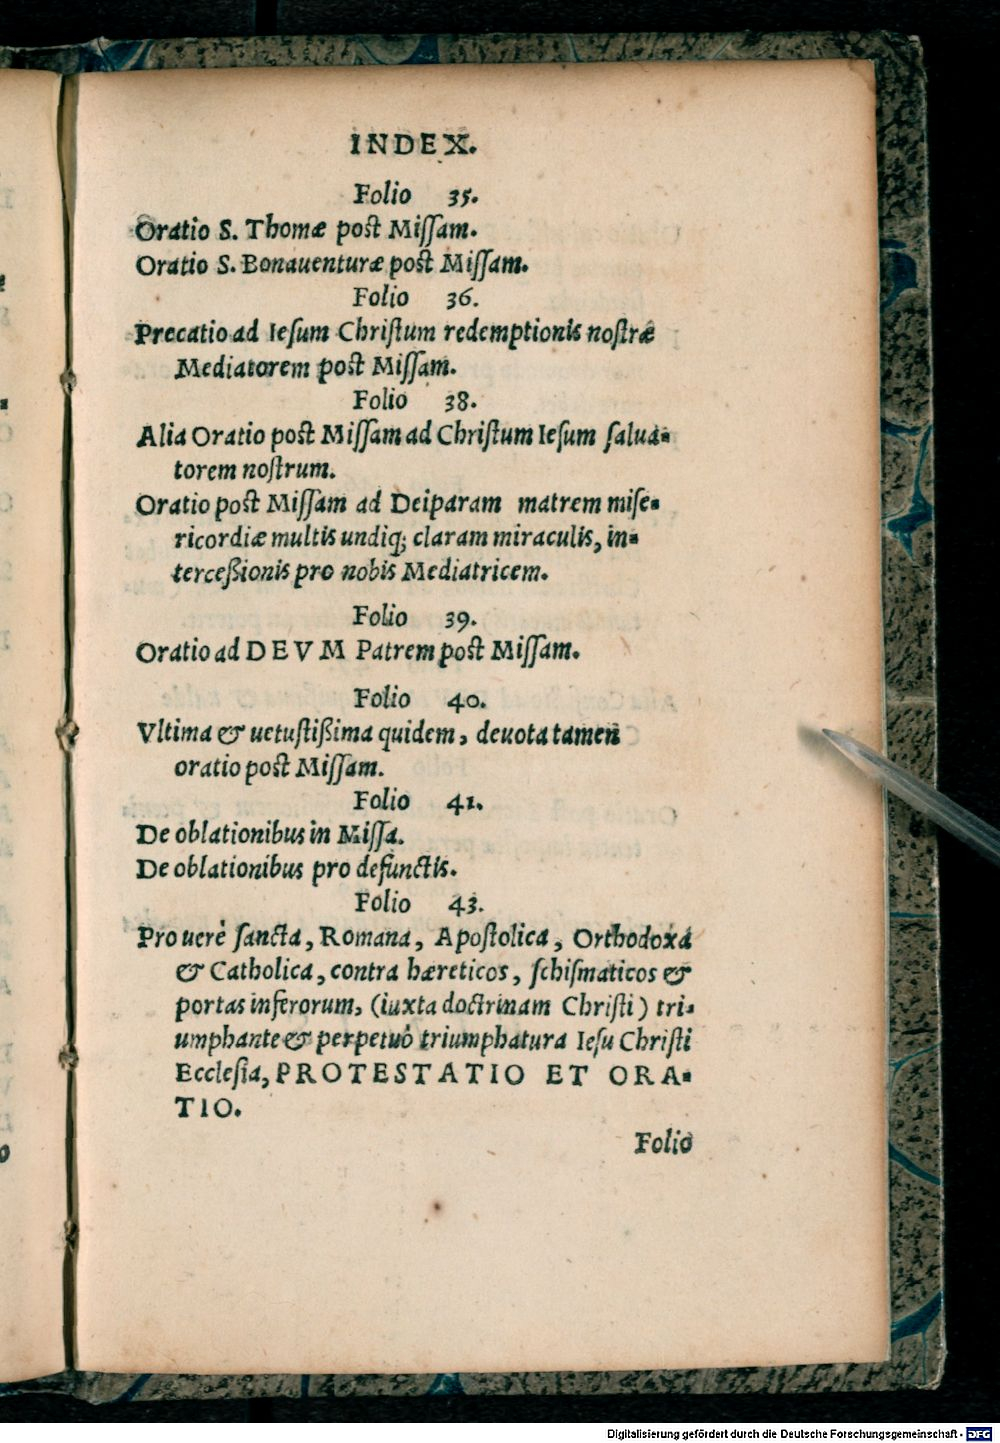 INDEX.
Folio 35.
Oratio S. Thomæ post Missam.
Oratio S. Bonauenturæ post Missam.
Folio 36.
Precatio ad Iesum Christum redemptionis nostræ
Mediatorem post Missam.
Folio 38.
Alia Oratio post Missam ad Christum Iesum salua-
torem nostrum.
Oratio post Missam ad Deiparam matrem mise-
ricordiæ multis undiq; claram miraculis, in-
terceßionis pro nobis Mediatricem.
Folio 39.
Oratio ad DEVM Patrem post Missam.
Folio 40.
Vltima & uetustißima quidem, deuota tamen
oratio post Missam.
Folio 41.
De oblationibus in Missa.
De oblationibus pro defunctis.
Folio 43.
Pro uerè sancta, Romana, Apostolica, Orthodoxa
& Catholica, contra hæreticos, schismaticos &
portas inferorum, (iuxta doctrinam Christi) tri-
umphante & perpetuò triumphatura Iesu Christi
Ecclesia, PROTESTATIO ET ORA-
TIO.
Folio
Digitalisierung gefördert durch die Deutsche Forschungsgemeinschaft - DFG